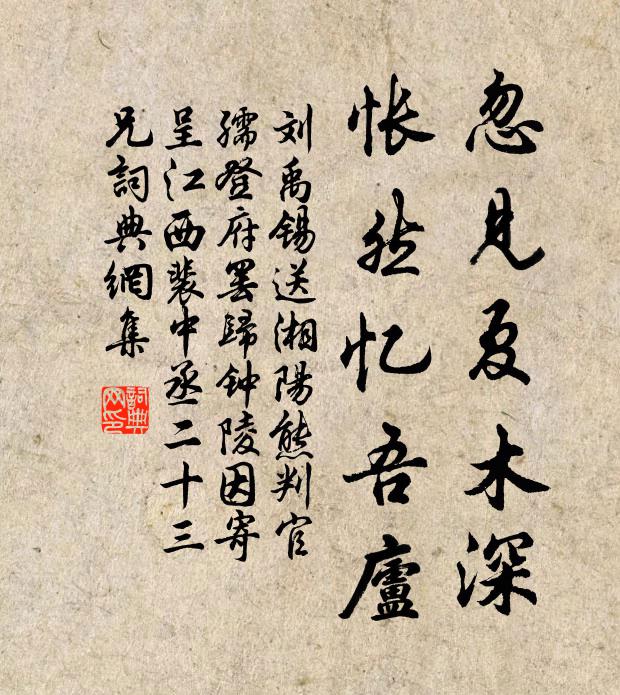 忽见夏木深
怅然忆吾廬
刘禹锡送湘陽熊判官
孺登府罢歸钟陵因寄
呈江西裴中丞二十三
兄詞典網集
詞典
网印